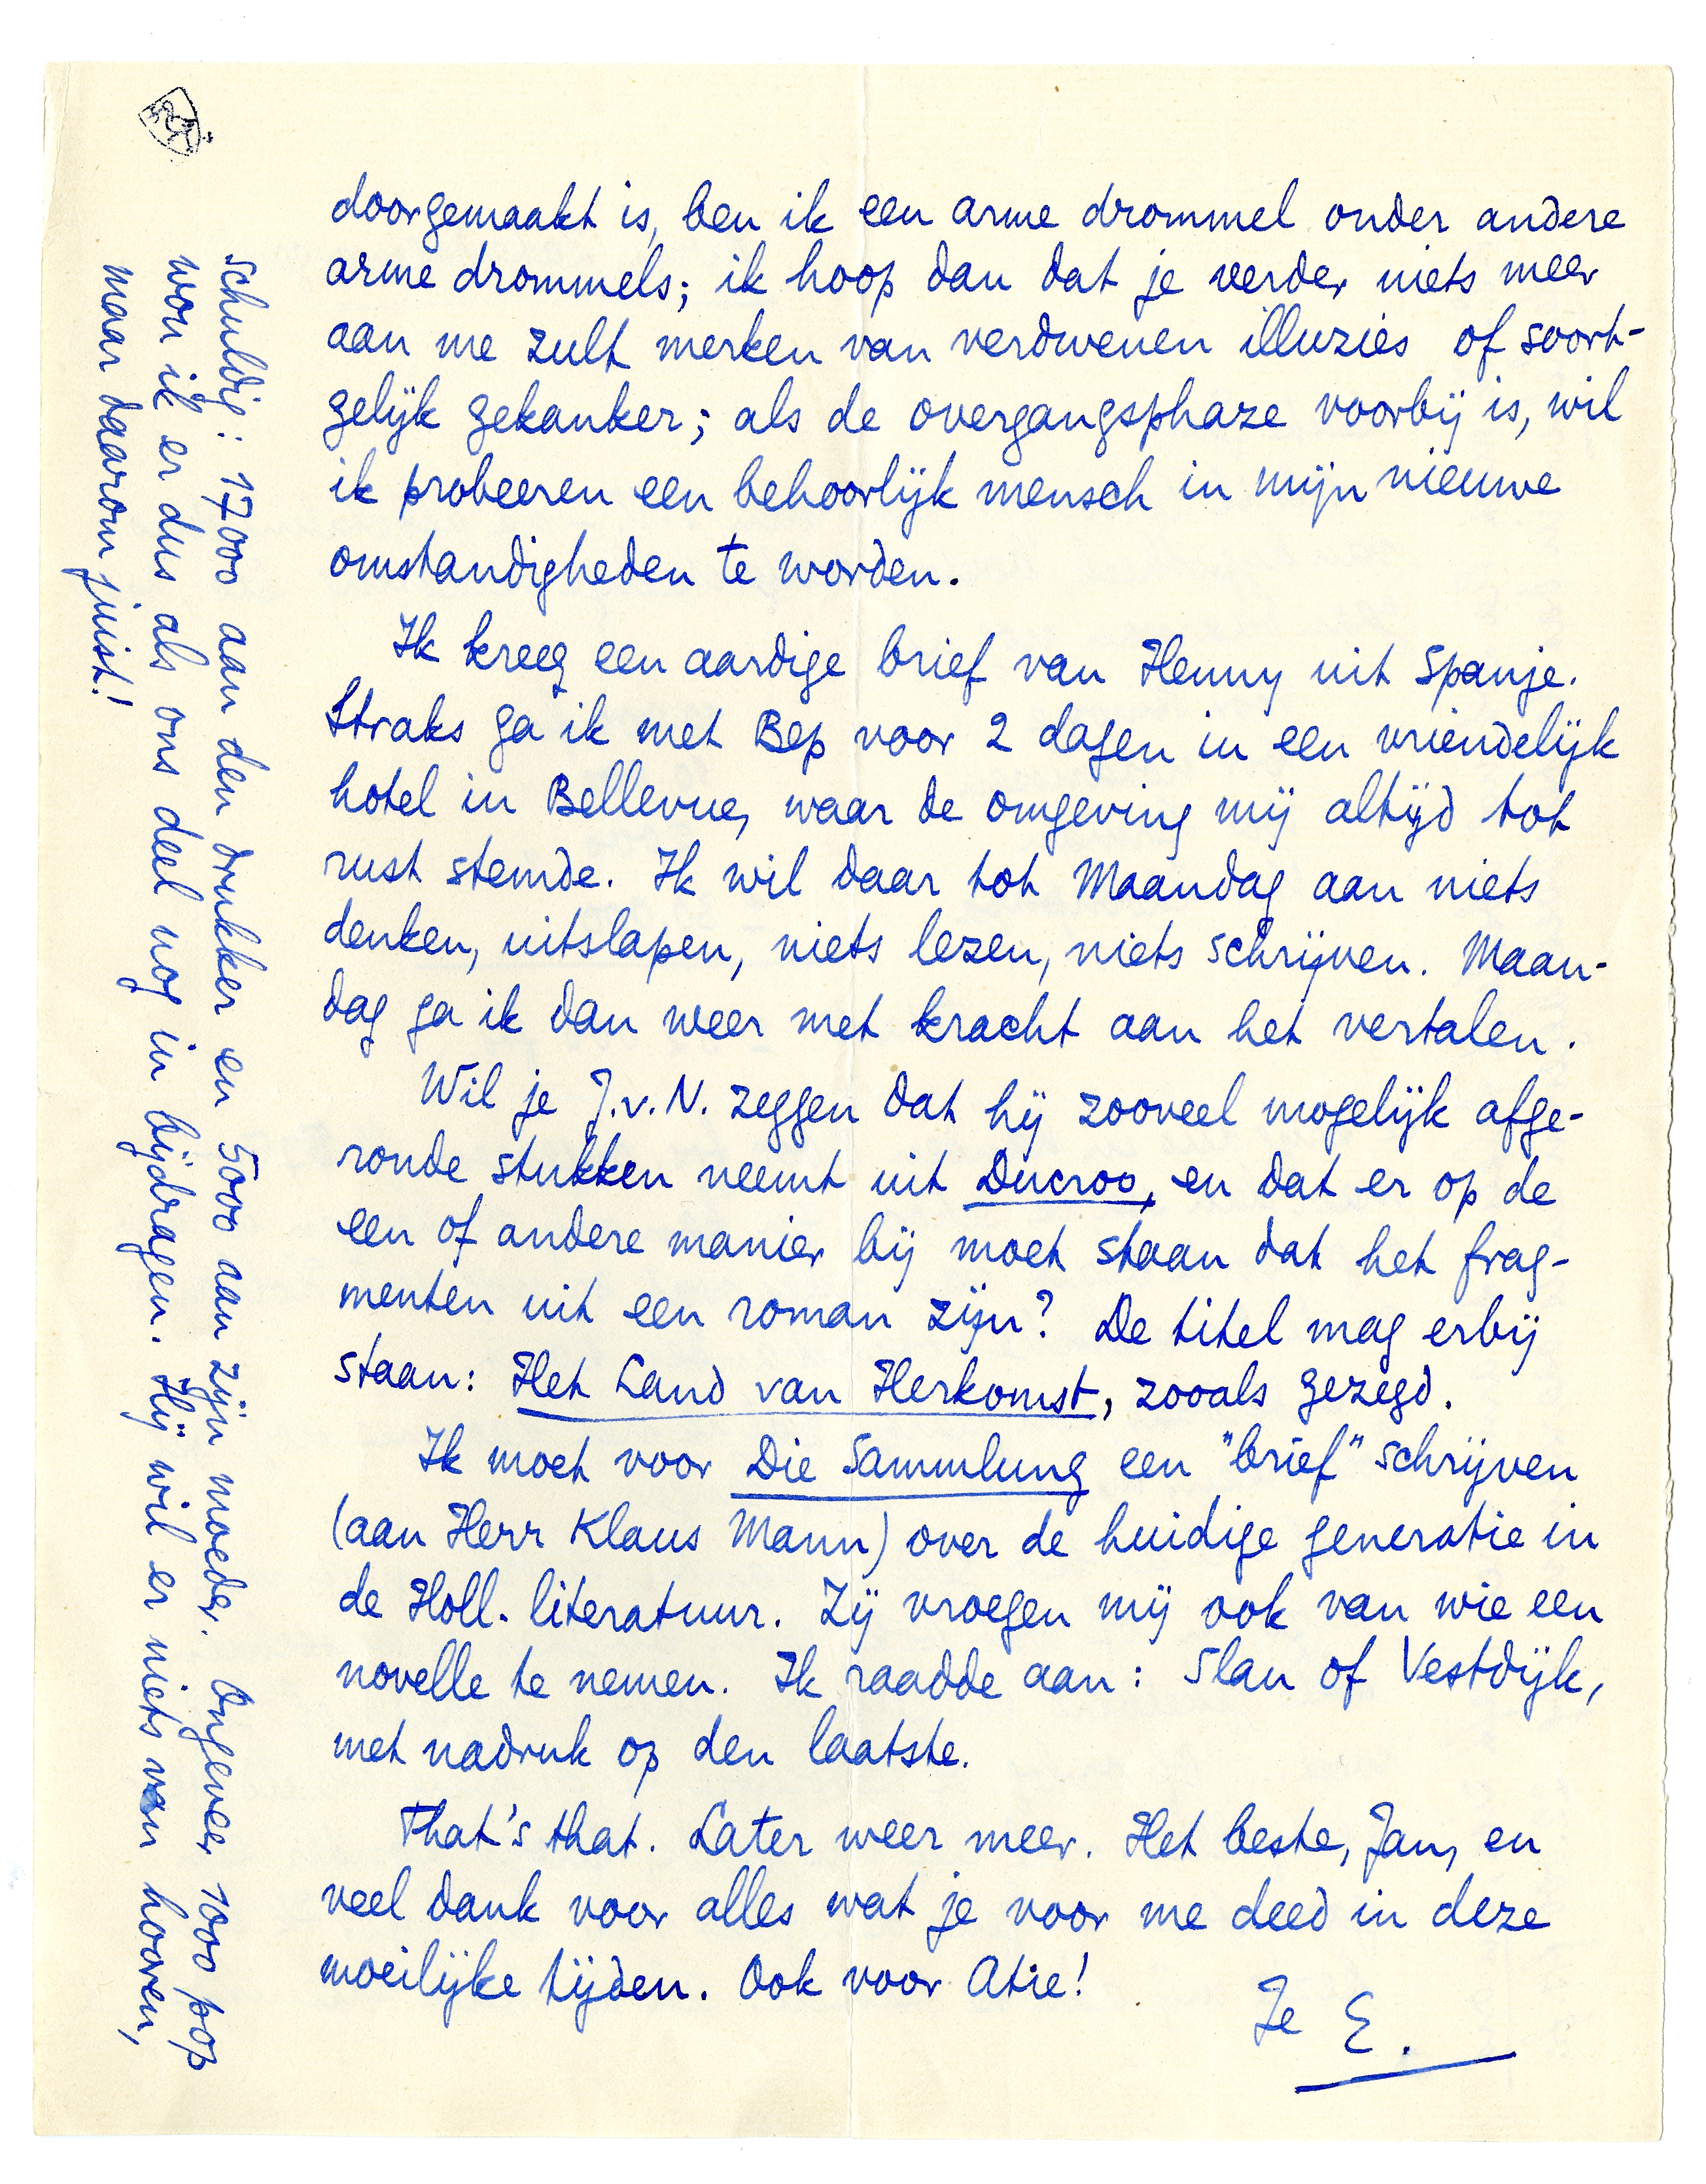 doorgemaakt is, ben ik een arme drommel onder andere
arme drommels; ik hoop dan dat je verder niets meer
aan me zult merken van verdwenen illuzies of soort-
gelijk gekanker; als de overgangsphaze voorbij is, wil
ik probeeren een behoorlijk mensch in mijn nieuwe
omstandigheden te worden.
Ik kreeg een aardige brief van Henny uit Spanje.
Straks ga ik met Bep voor 2 dagen in een vriendelijk
hotel in Bellevue, waar de omgeving mij altijd tot
rust stemde. Ik wil daar tot Maandag aan niets
denken, uitslapen, niets lezen, niets schrijven. Maan-
dag ga ik dan weer met kracht aan het vertalen.
Wil je J.v.N. zeggen dat hij zooveel mogelijk afge-
ronde stukken neemt uit Ducroo, en dat er op de
een of andere manier bij moet staan dat het frag-
menten uit een roman zijn? De titel mag erbij
staan: Het Land van Herkomst, zooals gezegd.
Ik moet voor Die Sammlung een "brief" schrijven
(aan Herr Klaus Mann) over de huidige generatie in
de Holl. literatuur. Zij vroegen mij ook van wie een
novelle te nemen. Ik raadde aan: Slau of Vestdijk,
met nadruk op den laatste.
That's that. Later weer meer. Het beste, Jan, en
veel dank voor alles wat je voor me deed in deze
moeilijke tijden. Ook voor Atie!
Je E.
schuldig: 17000 aan den drukker en 5000 aan zijn moeder. Ongeveer 1000 pop
won ik er dus als ons deel nog in bijdragen. Hij wil er niets van hooren,
maar daarom juist!